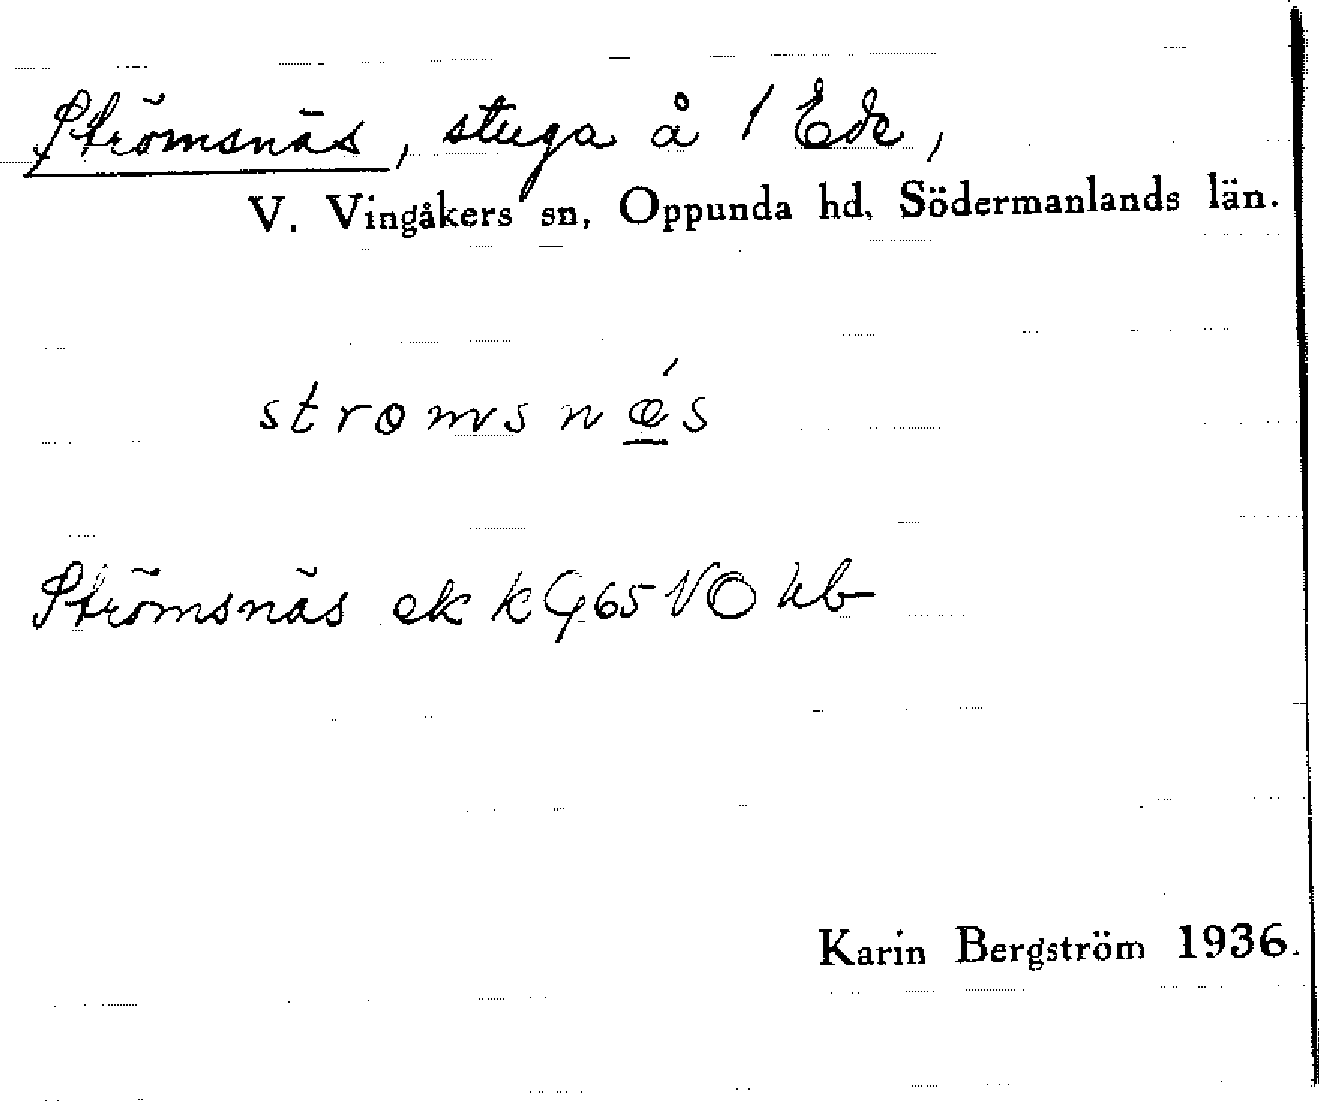 Strömsnäs, stuga å 1 Ede,
V. Vingåkers sn, Oppunda hd, Södermanlands län.
strɵmsnǽ̲s
Strömsnäs ek k G65 VO hb
Karin Bergström 1936.